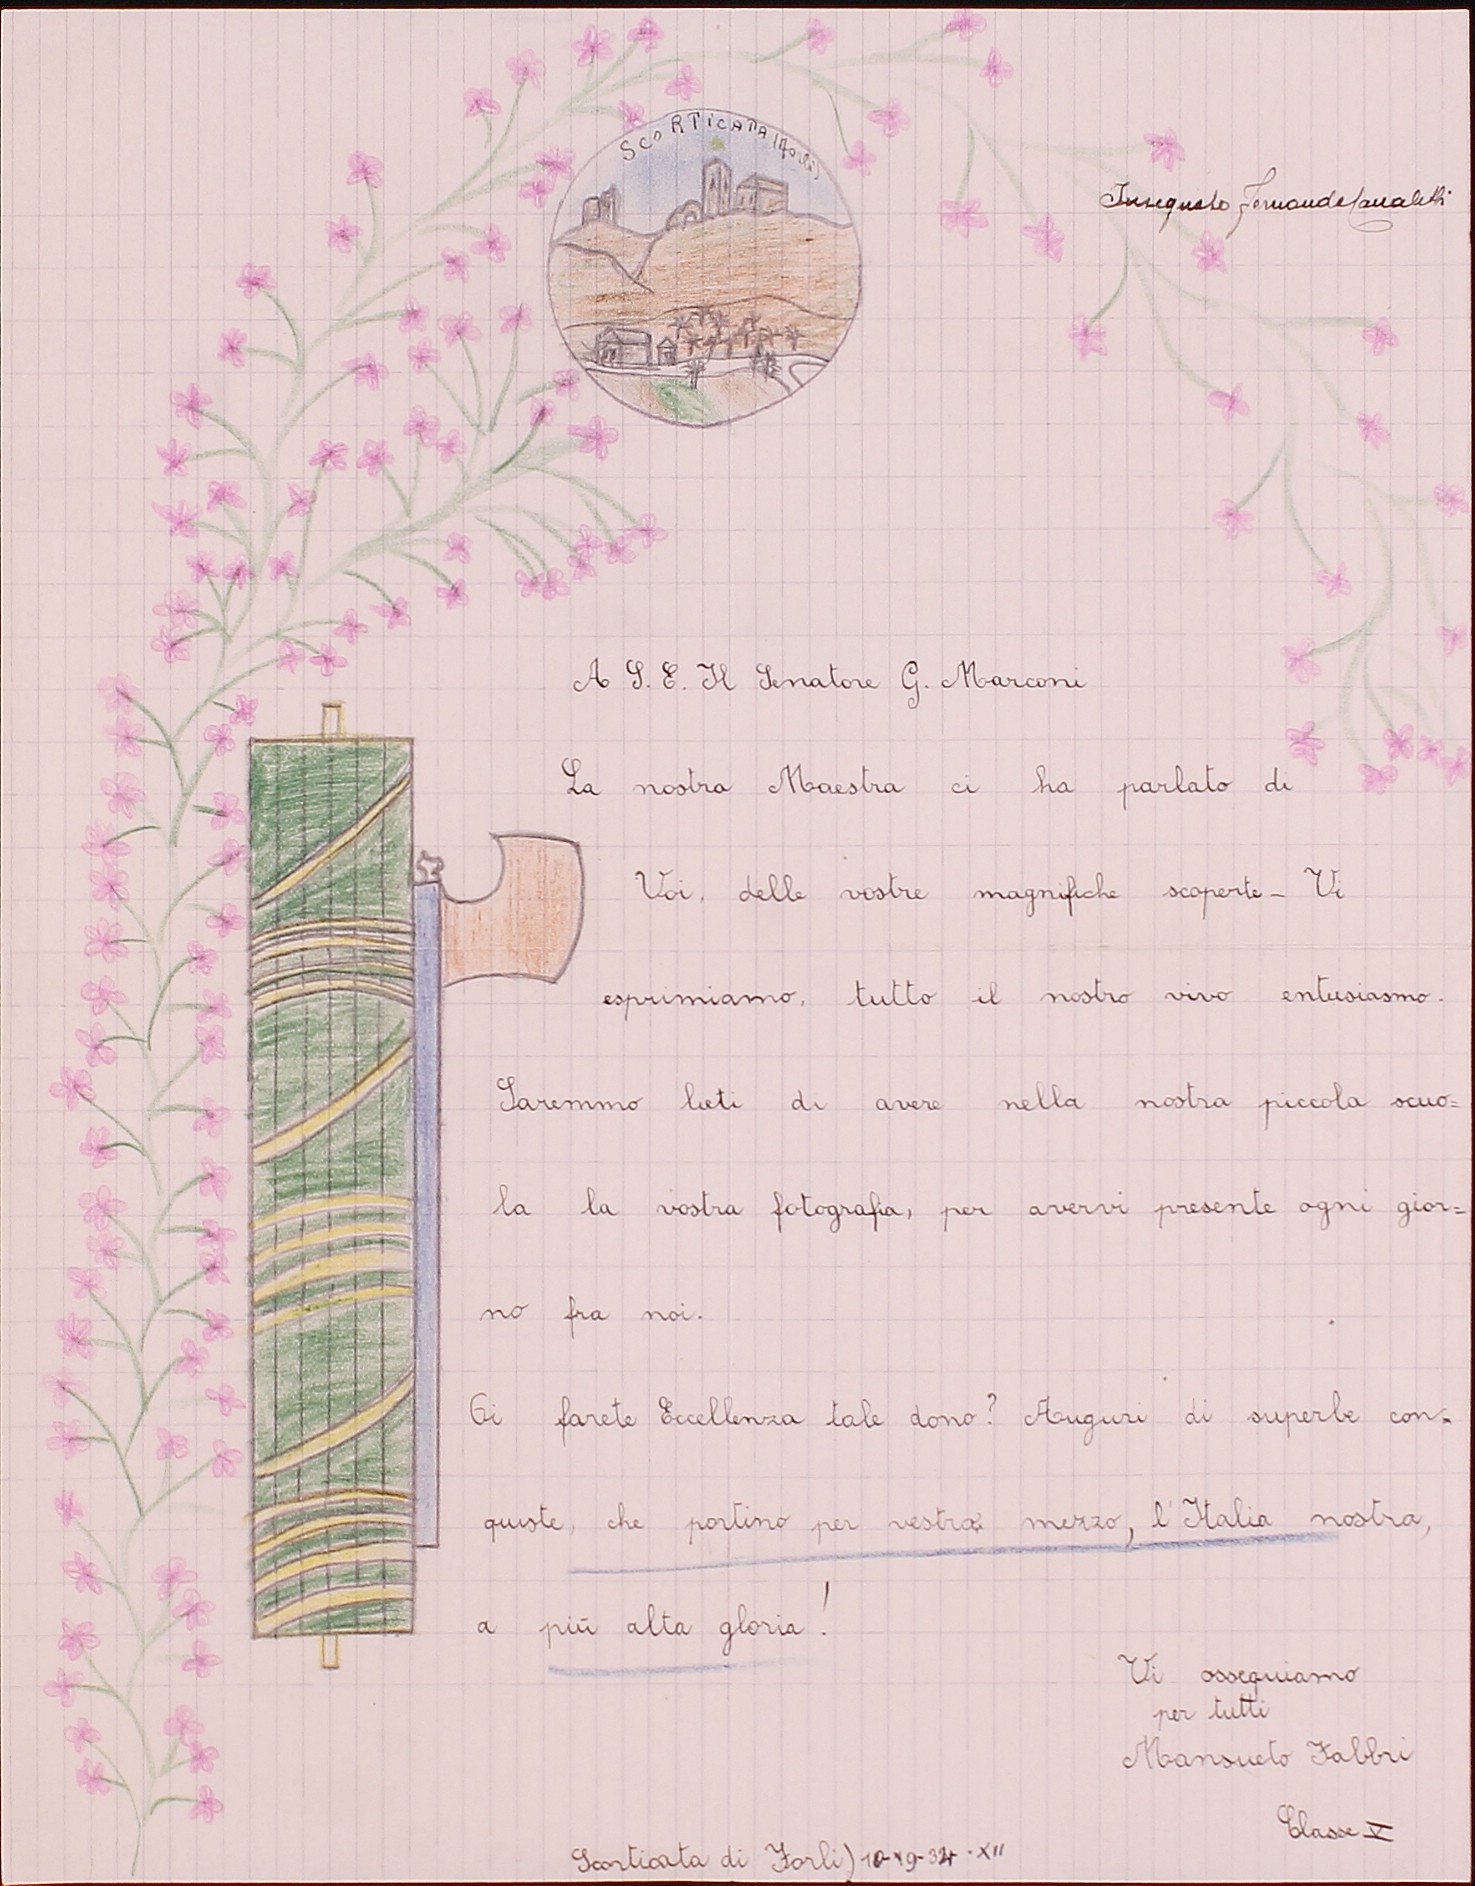 SCORTICATA (Forlì)
A S. E. Il Senatore G. Marconi
La nostra Maestra ci ha parlato di
Voi, delle vostre magnifiche scoperte - Vi
esprimiamo, tutto il nostro vivo entusiasmo.
Saremmo lieti di avere nella nostra piccola scuo=
la la vostra fotografia, per avervi presente ogni gior=
no fra noi.
Ci farete Eccellenza tale dono? Auguri di superbe con=
quiste, che portino per vostro mezzo, l'Italia nostra,
a più alta gloria!
Vi ossequiamo
per tutti
Mansueto Fabbri
Classe V
Scorticata di Forlì)